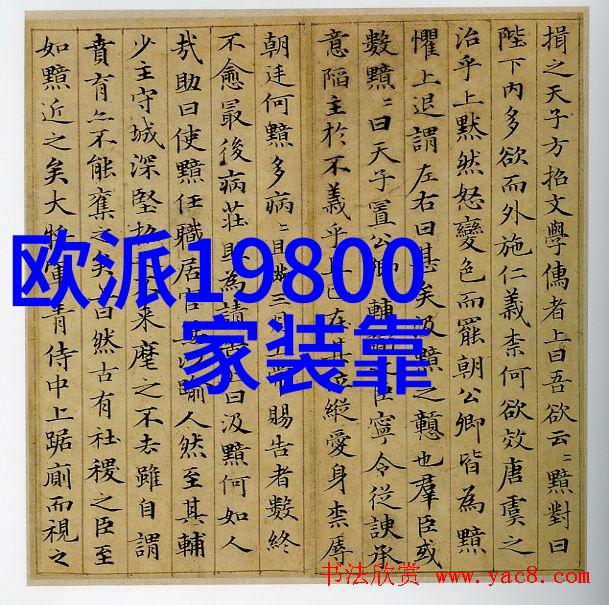 揖之天子方招文學儒者上曰吾欲云〻黯對曰
陛下內多欲而外施仁義柰何欲效唐虞之
治乎上黙然怒變色而罷朝公卿皆為黯
懼上退謂左右曰甚矣汲黯之戇也羣臣或
數黯〻曰天子置公卿輔臣寧令從諛承
意陷主於不義乎且已在其位縱愛身柰辱
朝廷何黯多病〻且滿三月上常賜告者數終
不愈最後病莊助為請告上曰汲黯何如人
哉助曰使黯任職居官無以踰人然至其輔
少主守城深堅招之不來麾之不去雖自謂
賁育亦不能奪之矣上曰然古有社稷之臣至
如黯近之矣大將軍青侍中上踞廁而視之
欧派19800
家装靠
书法欣赏 www.yac8.com